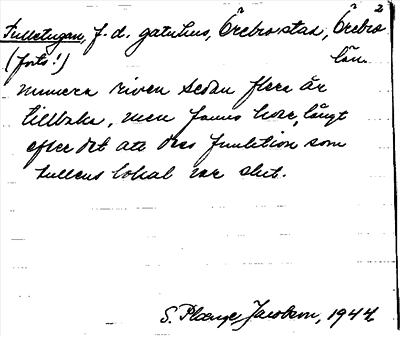 2
Tulletugan, f. d. gatuhus, Örebro stad, Örebro
(forts!) län.
numera riven sedan flera år
tillbaka, men fanns kvar långt
efter det att dess funktion som
tullens lokal var slut.
S. Plænge Jacobson, 1944